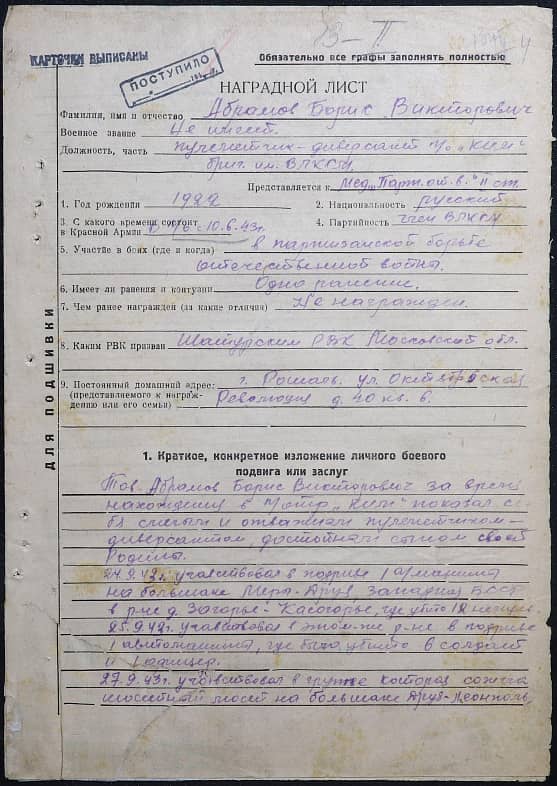 13-II
4
КАРТОЧКИ ВЫПИСАНЫ
ПОСТУПИЛО
Обязательно все графы заполнять полностью
НАГРАДНОЙ ЛИСТ
Фамилия, имя и отчество Абрамов Борис Викторович
Военное звание Не имеет.
Должность, часть пулеметчик-диверсант п/о „Ким"
бриг. им. ВЛКСМ.
Представляется к мед. „Парт. от. в." II ст.
1. Год рождения 1922 2. Национальность русский
3. С какого времени состоит
в Красной Армии 10.6.43г. 4. Партийность член ВЛКСМ
5. Участие в боях (где и когда) в партизанской борьбе
отечественной войны.
6. Имеет ли ранения и контузии Одно ранение.
7. Чем ранее награжден (за какие отличия) Не награжден.
8. Каким РВК призван Шатурским РВК Московской обл.
9. Постоянный домашний адрес: г. Рошаль, ул. Октябрьской
(представляемого к награж-
дению или его семьи) Революции д. 40 кв. 6.
ДЛЯ ПОДШИВКИ
1. Краткое, конкретное изложение личного боевого
подвига или заслуг
Тов. Абрамов Борис Викторович за время
нахождения в п/отр „Ким" показал се-
бя смелым и отважным пулеметчиком-
диверсантом, достойным сыном своей
Родины.
24.9.43г. участвовал в подрыве 1 а/машины
на большаке Меры-Друя, Западной БССР
в р-не д. Загорье- где убито 12 немцев.
25.9.43г. участвовал в этом-же р-не в подрыве
1 автомашины, где было убито 6 солдат
и 1 офицер.
27.9.43г. участвовал в группе которая сожгла
мост на большаке Друя-Леонполь,